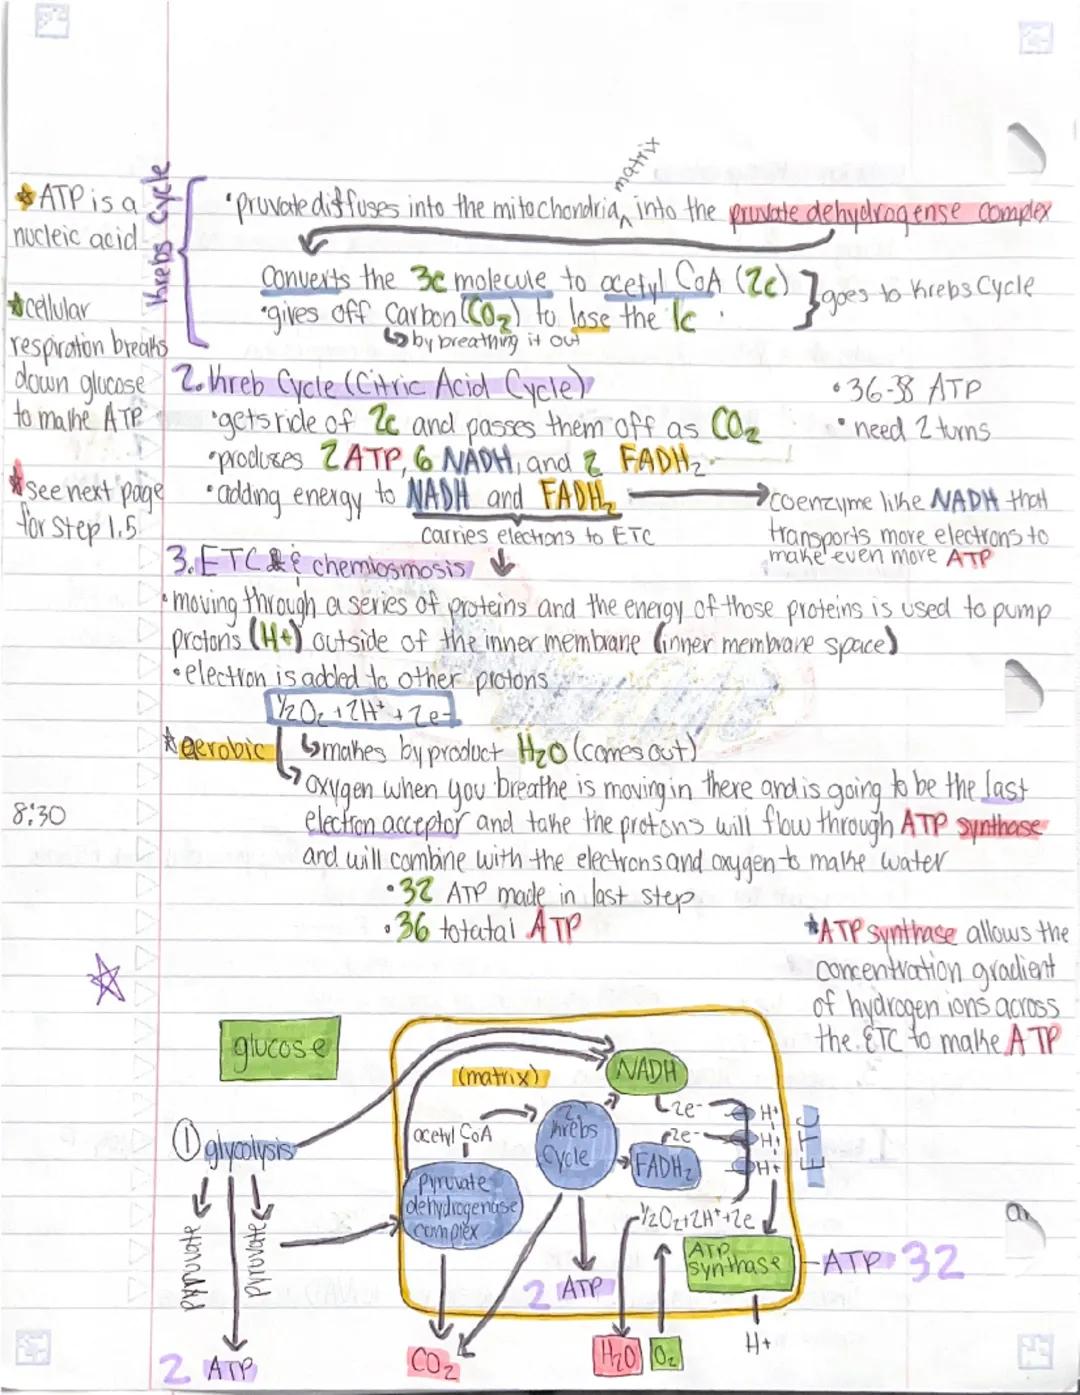 matrix
★ATP is a
nucleic acid
Krebs Cycle
•pruvate diffuses into the mitochondria, ^ into the pruvate dehydrogense complex
Converts the 3c molecule to acetyl CoA (2c)
•gives off carbon (CO2) to lose the 1c
↳by breathing it out
goes to Krebs Cycle
★cellular
respiration breaks
down glucose
to make ATP
2. Kreb Cycle (Citric Acid Cycle)
•gets ride of 2c and passes them off as CO2
•produses 2 ATP, 6 NADH, and 2 FADH2
•adding energy to NADH and FADH2
carries electrons to ETC
•36-38 ATP
•need 2 turns
coenzyme like NADH that
transports more electrons to
make even more ATP
*see next page
for step 1.5
3. ETC & chemiosmosis
•moving through a series of proteins and the energy of those proteins is used to pump
protons (H+) outside of the inner membrane (inner membrane space)
•electron is added to other protons
½O2 + 2H+ + 2e-
*aerobic
↳makes byproduct H2O (comes out)
oxygen when you breathe is moving in there and is going to be the last
electron acceptor and take the protons will flow through ATP synthase
and will combine with the electrons and oxygen to make water
8:30
•32 ATP made in last step
•36 totatal ATP
*ATP synthase allows the
concentration gradient
of hydrogen ions across
the ETC to make ATP
glucose
(matrix)
NADH
2e-
H+
acetyl CoA
2.
Krebs
Cycle
2e-
H+
ETC
① glycolysis
FADH2
H+
pyruvate
dehydrogenase
complex
½O2+2H++2e
pyruvate
pyruvate
ATP
synthase
ATP 32
2 ATP
H+
2 ATP
CO2
H2O
O2